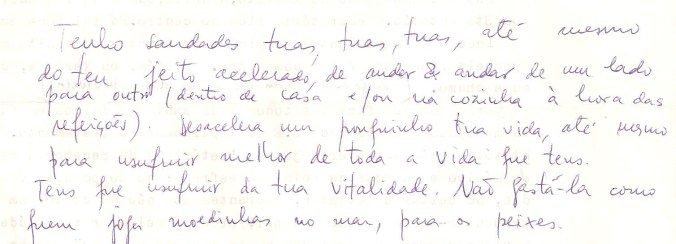 Tenho saudades tuas, tuas, tuas, até mesmo
do teu jeito acelerado, de andar & andar de um lado
para outro (dentro de casa e/ou na cozinha à hora das
refeições). Desacelera um pouquinho tua vida, até mesmo
para usufruir melhor de toda a vida que tens.
Tens que usufruir da tua vitalidade. Não gastá-la como
quem joga moedinhas no mar, para os peixes.